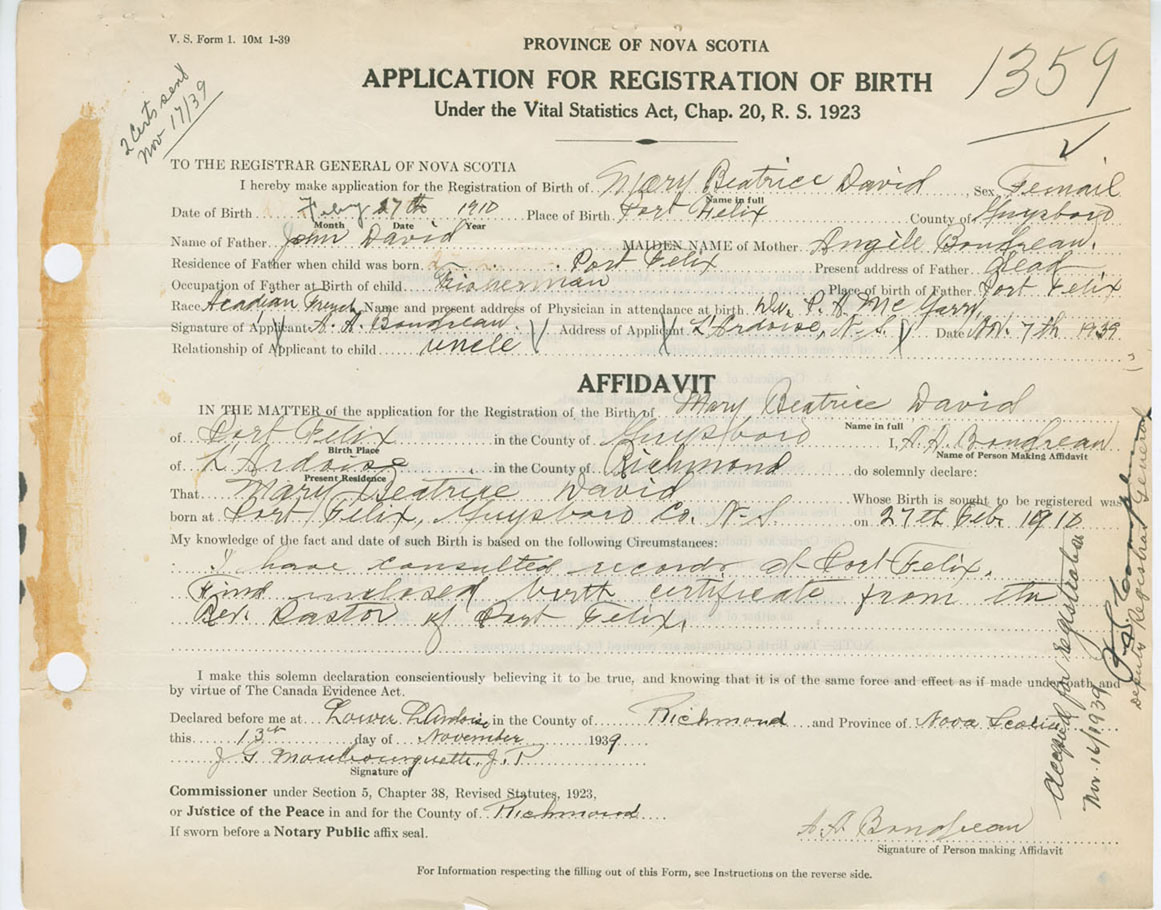 V. S. Form 1. 10M 1-39
PROVINCE OF NOVA SCOTIA
1359
APPLICATION FOR REGISTRATION OF BIRTH
Under the Vital Statistics Act, Chap. 20, R. S. 1923
2 Certs sent
Nov 17/39
TO THE REGISTRAR GENERAL OF NOVA SCOTIA
I hereby make application for the Registration of Birth of Mary Beatrice David Sex Femail
Name in full
Date of Birth Feby 27th 1910 Place of Birth Port Felix County of Guysboro
Month Date Year
Name of Father John David MAIDEN NAME of Mother Angèle Boudreau.
Residence of Father when child was born Port Felix Present address of Father dead
Occupation of Father at Birth of child Fisherman Place of birth of Father Port Felix
Race Acadian French Name and present address of Physician in attendance at birth Dr. P. A. McGarry
Signature of Applicant A. A. Boudreau. Address of Applicant L'Ardoise, N. S. Date Nov. 7th 1939
Relationship of Applicant to child uncle
AFFIDAVIT
IN THE MATTER of the application for the Registration of the Birth of Mary Beatrice David
Name in full
of Port Felix in the County of Guysboro I, A. A. Boudreau
Birth Place Name of Person Making Affidavit
of L'Ardoise in the County of Richmond do solemnly declare:
Present Residence
That Mary Beatrice David Whose Birth is sought to be registered was
born at Port Felix, Guysboro Co. N-S. on 27th Feb. 1910
My knowledge of the fact and date of such Birth is based on the following Circumstances:
I have consulted records at Port Felix.
Find inclosed birth certificate from the
Rev. Pastor of Port Felix.
I make this solemn declaration conscientiously believing it to be true, and knowing that it is of the same force and effect as if made under oath and
by virtue of The Canada Evidence Act.
Declared before me at Lower L'Ardoise in the County of Richmond and Province of Nova Scotia
this 13th day of November 1939
J G Mombourquette, J. P
Signature of
Commissioner under Section 5, Chapter 38, Revised Statutes, 1923,
or Justice of the Peace in and for the County of Richmond
If sworn before a Notary Public affix seal.
A. A. Boudreau
Signature of Person making Affidavit
For Information respecting the filling out of this Form, see Instructions on the reverse side.
Accepted for registration
Nov. 16/1939
Deputy Registrar General